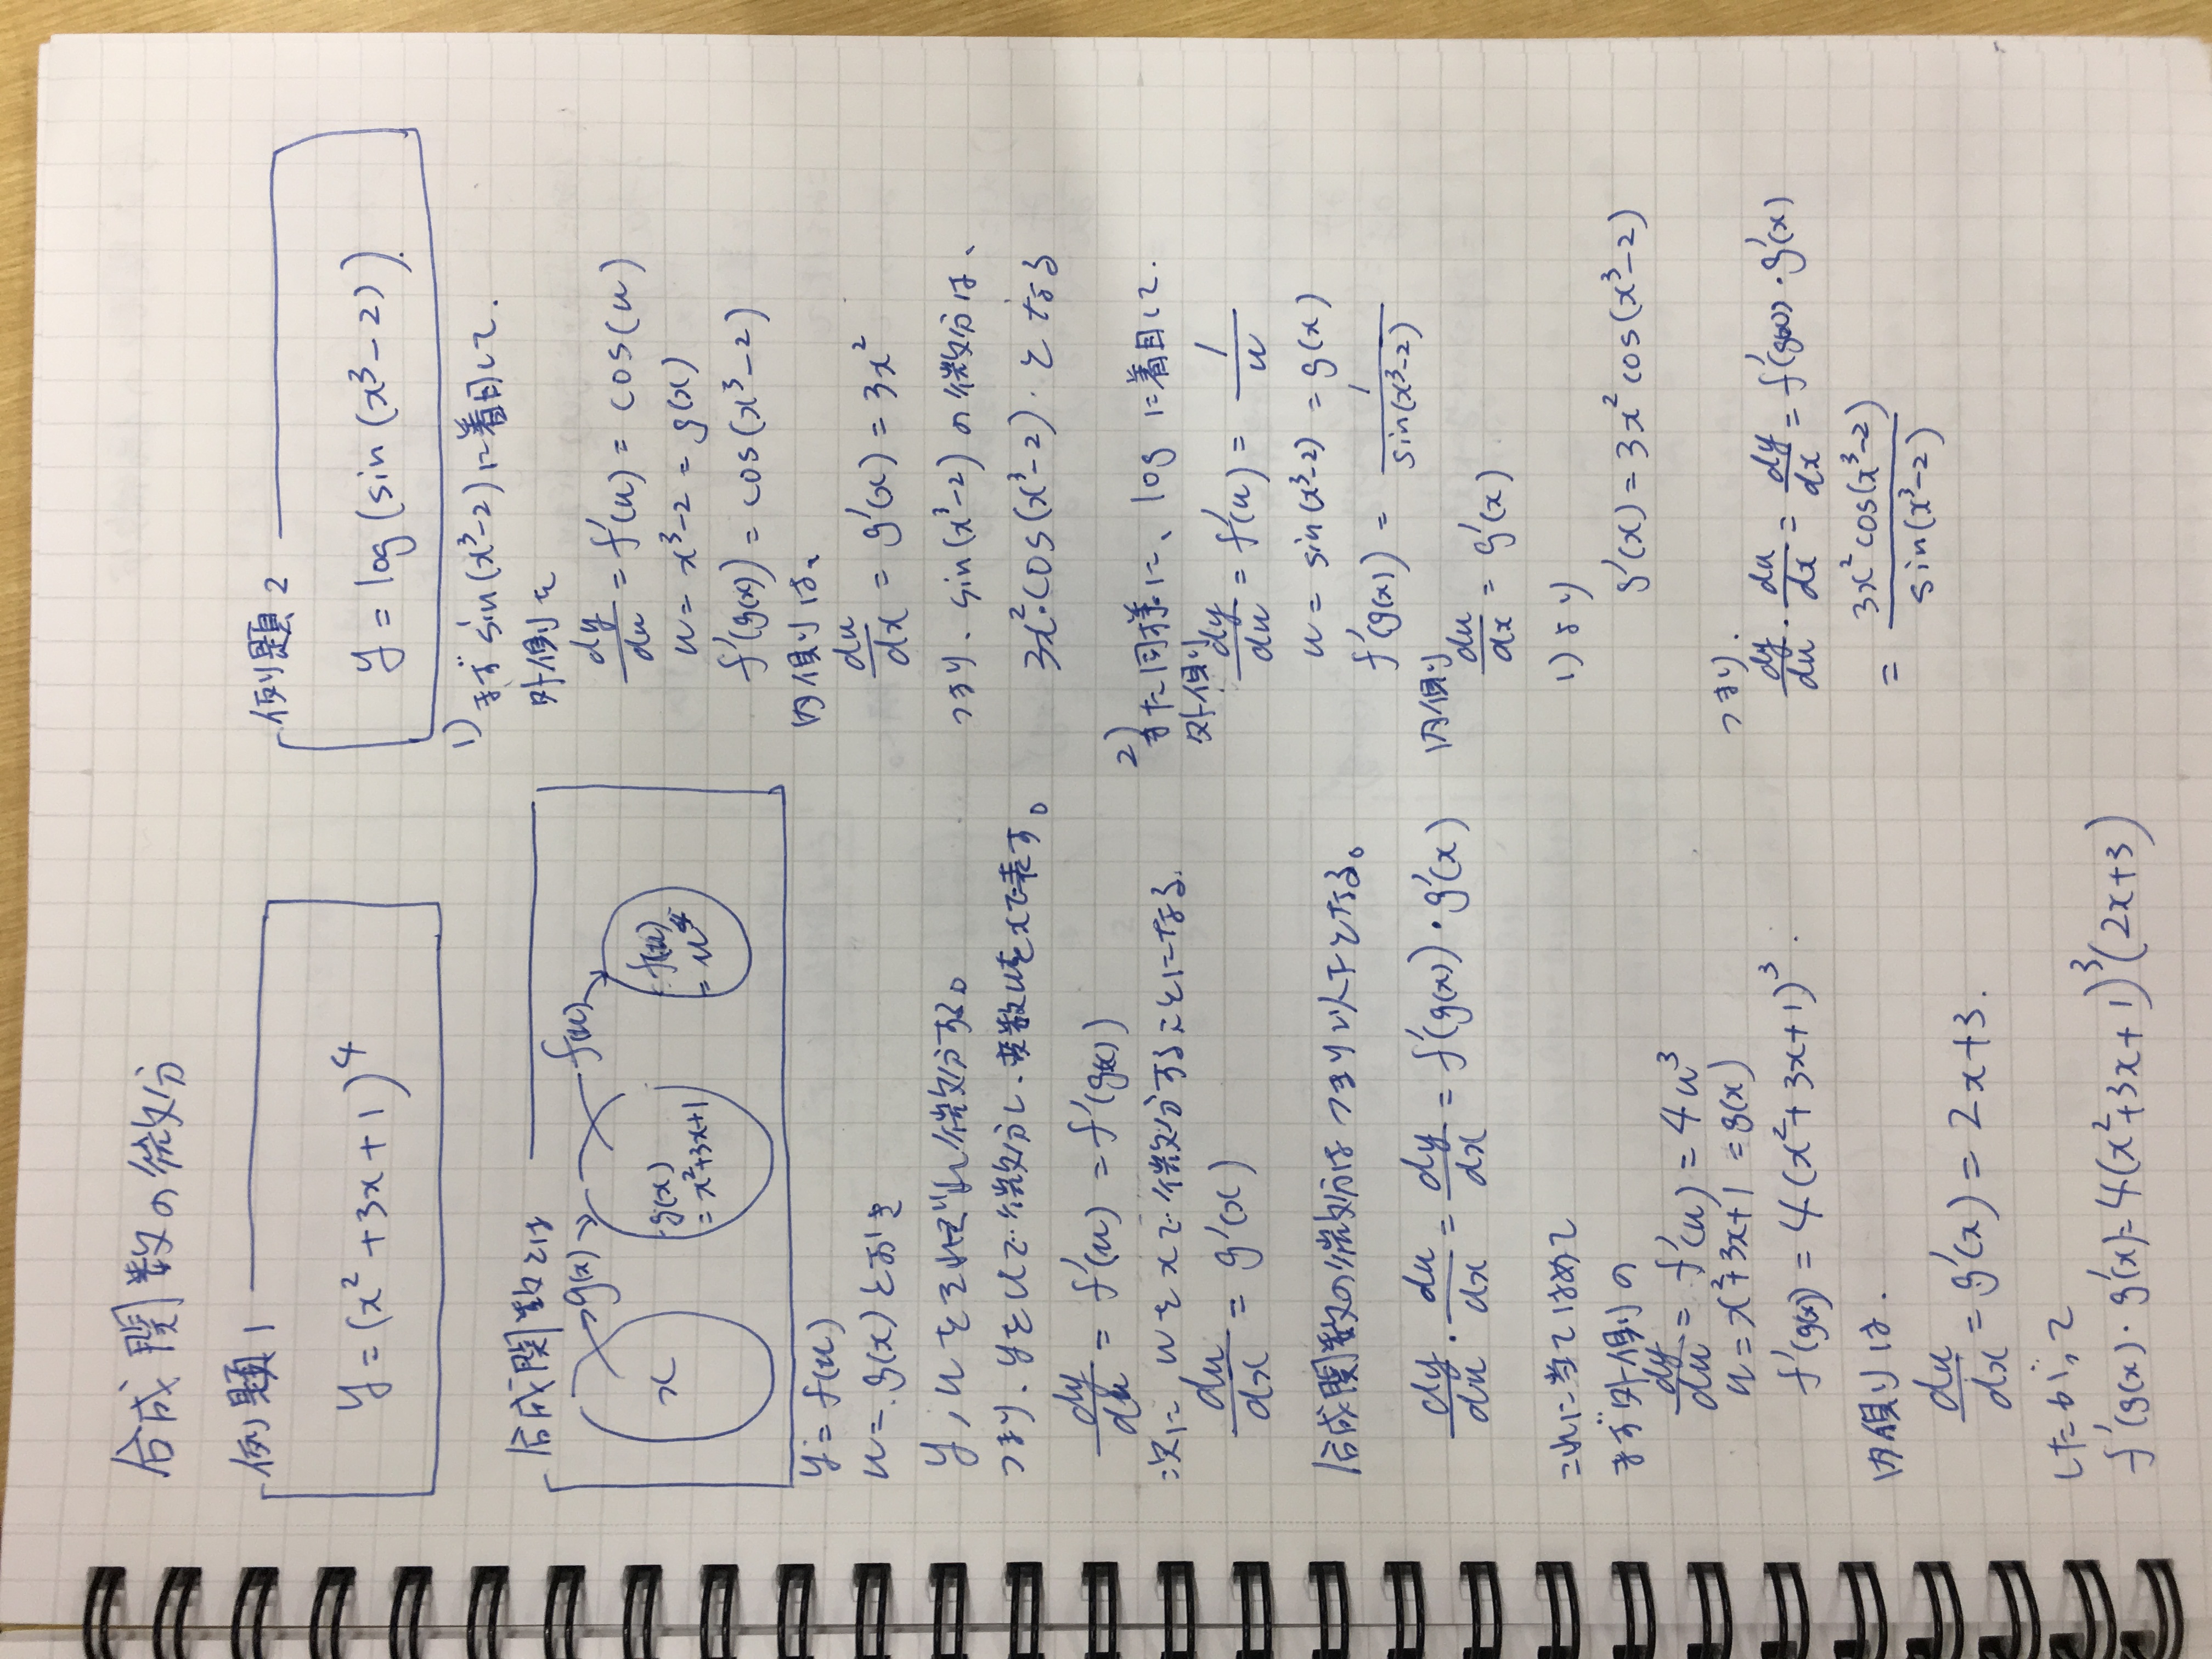 合成関数の微分
例題1
y = (x² + 3x + 1)⁴
合成関数とは
g(x) f(u)
x
g(x)
= x²+3x+1
f(u)
= u⁴
y = f(u)
u = g(x) とおき
y, u をそれぞれ微分する。
つまり、yをuで微分し、変数uをxで表す。
dy/du = f'(u) = f'(g(x))
次に uをxで微分することになる.
du/dx = g'(x)
合成関数の微分はつまり以下となる。
dy/du · du/dx = dy/dx = f'(g(x)) · g'(x)
これに当てはめて
まず外側の
dy/du = f'(u) = 4u³
u = x²+3x+1 = g(x)
f'(g(x)) = 4(x²+3x+1)³.
内側は.
du/dx = g'(x) = 2x+3.
したがって
f'(g(x) · g'(x) = 4(x²+3x+1)³(2x+3)
例題2
y = log(sin(x³-2).
1) まず sin(x³-2) に着目して.
外側を
dy/du = f'(u) = cos(u)
u = x³-2 = g(x)
f'(g(x)) = cos(x³-2)
内側は、
du/dx = g'(x) = 3x²
つまり、sin(x³-2) の微分は、
3x²·cos(x³-2). となる
2) また同様に、log に着目して.
外側
dy/du = f'(u) = 1/u
u = sin(x³-2) = g(x)
f'(g(x)) = 1/sin(x³-2)
内側
du/dx = g'(x)
1) より
g'(x) = 3x² cos(x³-2)
つまり.
dy/du · du/dx = dy/dx = f'(g(x)) · g'(x)
= 3x² cos(x³-2)/sin(x³-2)